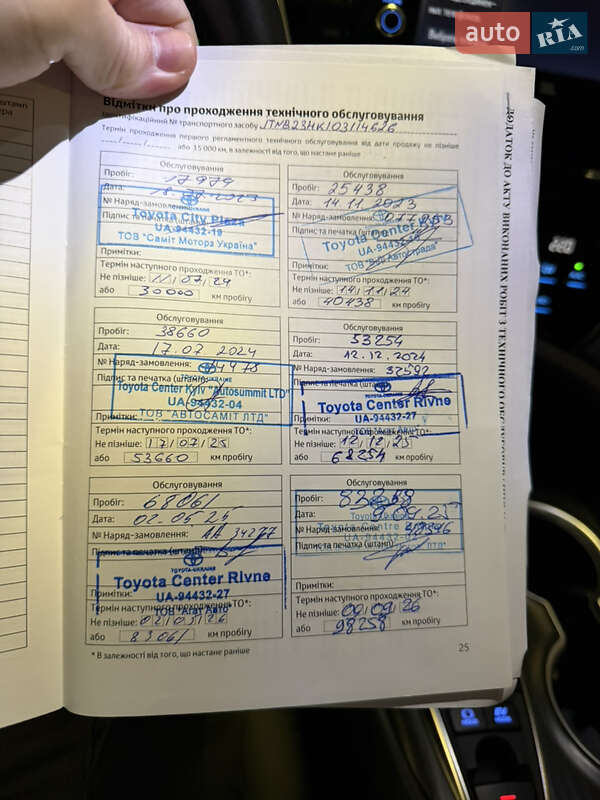 auto RIA .com
Відмітки про проходження технічного обслуговування
Ідентифікаційний № транспортного засобу JTNB23HK103114626
Термін проходження першого регламентного технічного обслуговування від дати продажу не пізніше
або 15 000 км, в залежності від того, що настане раніше
Обслуговування
Пробіг: 17979
Дата:
№ Наряд-замовлення:
Підпис та печатка
Toyota City Plaza
UA-94432-19
ТОВ "Саміт Моторз Україна"
Примітки:
Термін наступного проходження ТО*:
Не пізніше: 11/07/24
або 30000 км пробігу
Обслуговування
Пробіг: 25438
Дата: 14.11.2023
№ Наряд-замовлення:
Підпис та печатка
Toyota Center Kyiv
UA-94432-
Примітки:
Термін наступного проходження ТО*:
Не пізніше: 14/11/24
або 40438 км пробігу
Обслуговування
Пробіг: 38660
Дата: 17.07 2024
№ Наряд-замовлення:
Підпис та печатка (штамп)
Toyota Center Kyiv "Autosummit LTD"
UA-94432-04
ТОВ "АВТОСАМІТ ЛТД"
Примітки:
Термін наступного проходження ТО*:
Не пізніше: 17/07/25
або 53660 км пробігу
Обслуговування
Пробіг: 53254
Дата: 12.12.2024
№ Наряд-замовлення: 32592
Підпис та печатка
Toyota Center Rivne
UA-94432-27
Примітки:
Термін наступного проходження ТО*:
Не пізніше: 12/12/25
або 68254 км пробігу
Обслуговування
Пробіг: 68061
Дата: 02.05.25
№ Наряд-замовлення: АА 34277
Підпис та печатка (штамп)
TOYOTA-UKRAINE
Toyota Center Rivne
UA-94432-27
ТОВ "Агат Авто"
Примітки:
Термін наступного проходження ТО*:
Не пізніше: 02/05/26
або 83061 км пробігу
Обслуговування
Пробіг:
Дата:
№ Наряд-замовлення:
Підпис та печатка (штамп)
Примітки:
Термін наступного проходження ТО*:
Не пізніше: 09/09/26
або 98258 км пробігу
* В залежності від того, що настане раніше
25